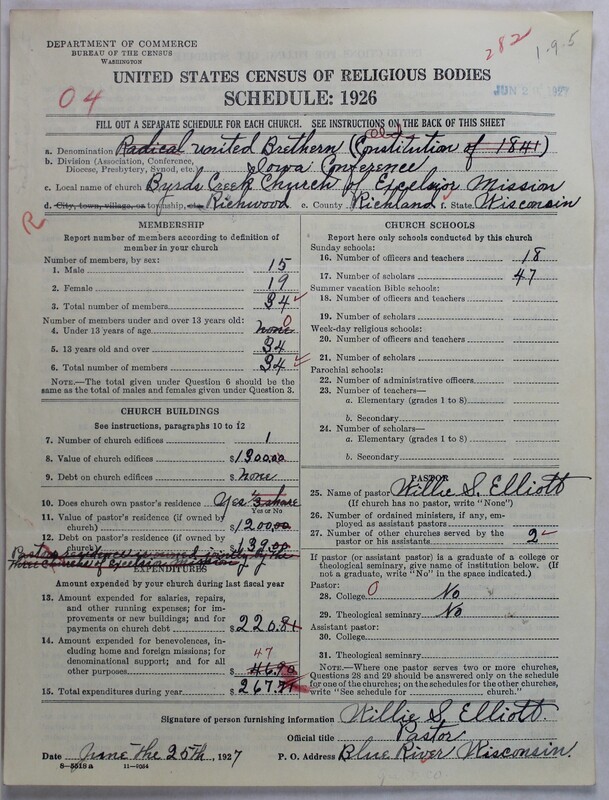 282
1-9-5
DEPARTMENT OF COMMERCE
BUREAU OF THE CENSUS
WASHINGTON
UNITED STATES CENSUS OF RELIGIOUS BODIES
JUN 2 1927
04
SCHEDULE: 1926
FILL OUT A SEPARATE SCHEDULE FOR EACH CHURCH. SEE INSTRUCTIONS ON THE BACK OF THIS SHEET
a. Denomination Radical United Brethern (Old Constitution of 1841)
b. Division (Association, Conference, Diocese, Presbytery, Synod, etc.) Iowa Conference
c. Local name of church Byrds Creek Church of Excelsior Mission
d. City, town, village, or township, etc. Richwood e. County Richland f. State Wisconsin
R
MEMBERSHIP
Report number of members according to definition of
member in your church
Number of members, by sex:
1. Male 15
2. Female 19
3. Total number of members 34
Number of members under and over 13 years old:
4. Under 13 years of age none 0
5. 13 years old and over 34
6. Total number of members 34
NOTE.—The total given under Question 6 should be
same as the total of males and females given under Question 3.
CHURCH BUILDINGS
See instructions, paragraphs 10 to 12
7. Number of church edifices 1
8. Value of church edifices $1300.00
9. Debt on church edifices $ none
10. Does church own pastor's residence Yes 1/3 share
Yes or No
11. Value of pastor's residence (if owned by
church) $1200.00
12. Debt on pastor's residence (if owned by
church) $139.00
Pastor residence is owned jointly by the
three Churches of Excelsior Mission
EXPENDITURES
Amount expended by your church during last fiscal year
13. Amount expended for salaries, repairs,
and other running expenses; for im-
provements or new buildings; and for
payments on church debt $220.81
14. Amount expended for benevolences, in-
cluding home and foreign missions; for
denominational support; and for all
other purposes $46.90 47
15. Total expenditures during year $267.71
CHURCH SCHOOLS
Report here only schools conducted by this church
Sunday schools:
16. Number of officers and teachers 18
17. Number of scholars 47
Summer vacation Bible schools:
18. Number of officers and teachers
19. Number of scholars
Week-day religious schools:
20. Number of officers and teachers
21. Number of scholars
Parochial schools:
22. Number of administrative officers
23. Number of teachers—
a. Elementary (grades 1 to 8)
b. Secondary
24. Number of scholars—
a. Elementary (grades 1 to 8)
b. Secondary
PASTOR
25. Name of pastor Willie S. Elliott
(If church has no pastor, write "None")
26. Number of ordained ministers, if any, em-
ployed as assistant pastors
27. Number of other churches served by the
pastor or his assistants 2
If pastor (or assistant pastor) is a graduate of a college or
theological seminary, give name of institution below. (If
not a graduate, write "No" in the space indicated.)
Pastor:
28. College 0 No
29. Theological seminary No
Assistant pastor:
30. College
31. Theological seminary
NOTE.—Where one pastor serves two or more churches,
Questions 28 and 29 should be answered only on the schedule
for one of the churches; on the schedules for the other churches,
write "See schedule for church."
Signature of person furnishing information Willie S. Elliott.
Official title Pastor
Date June the 25th, 1927 P. O. Address Blue River Wisconsin.
8-5518a 11-9054